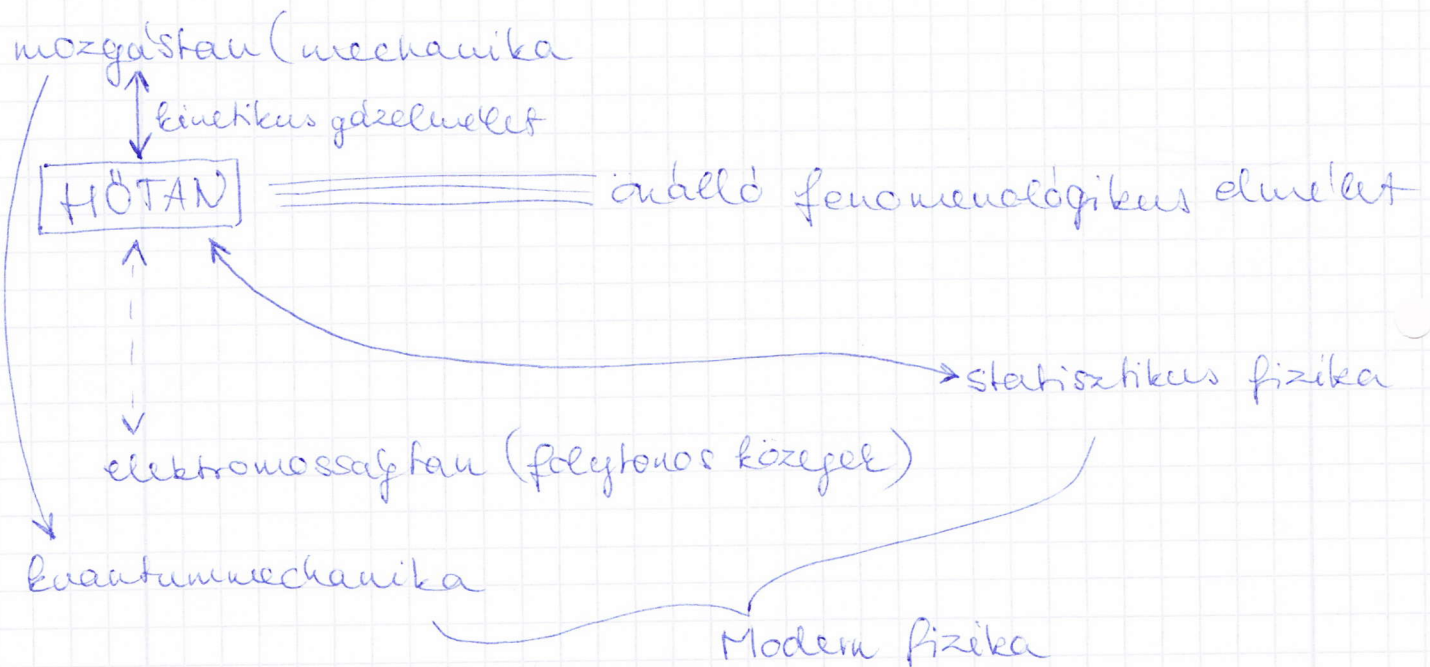 mozgástan (mechanika
kinetikus gázelmélet
HŐTAN önálló fenomenológikus elmélet
statisztikus fizika
elektromosságtan (folytonos közegek)
kvantummechanika
Modern fizika